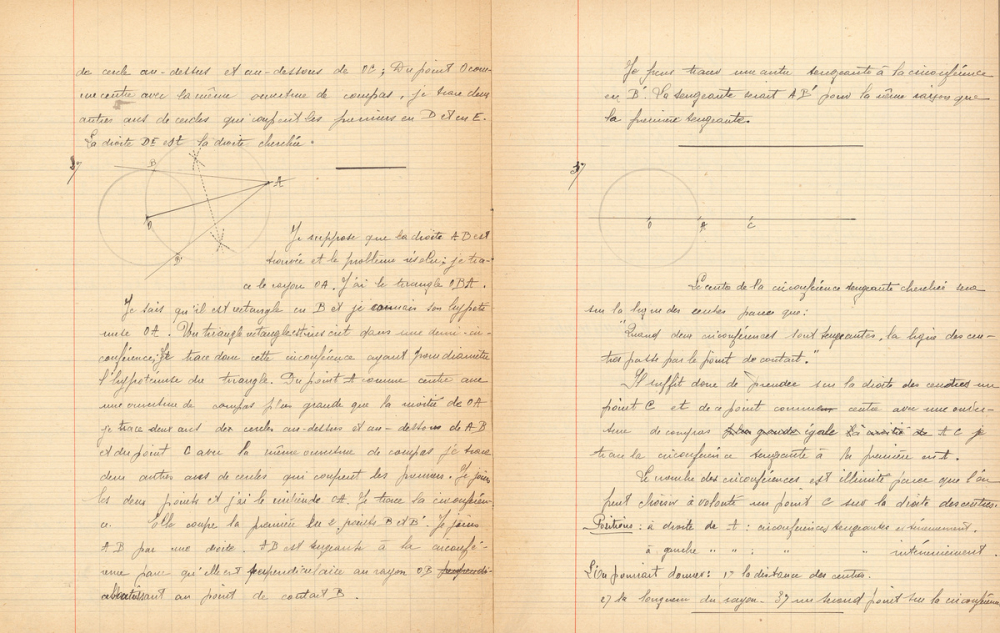 de cercle au-dessus et au-dessous de OC; Du point O com-
me centre avec la même ouverture de compas, je trace deux
autres arcs de cercles qui coupent les premiers en D et en E.
La droite DE est la droite cherchée.
3°/
B
A
O
B'
Je suppose que la droite AB est
trouvée et le problème résolu; je tra-
ce le rayon OA. J'ai le triangle OBA.
Je sais qu'il est rectangle en B et je connais son hypoté-
nuse OA. Un triangle rectangle s'inscrit dans une demi-cir-
conférence; Je trace donc cette circonférence ayant pour diamètre
l'hypoténuse du triangle. Du point A comme centre avec
une ouverture de compas plus grande que la moitié de OA
je trace deux arcs de cercles au-dessus et au-dessous de AB
et du point O avec la même ouverture de compas je trace
deux autres arcs de cercles qui coupent les premiers. Je joins
les deux points et j'ai le milieu de OA. Je trace la circonféren-
ce. Elle coupe la première en 2 points B et B'. Je joins
AB par une droite. AB est tangente à la circonfé-
rence parce qu'elle est perpendiculaire au rayon OB
aboutissant au point de contact B.
Je peux tracer une autre tangente à la circonférence
en B'. La tangente serait AB' pour la même raison que
la première tangente.
3°/
O A C
Le centre de la circonférence tangente cherchée sera
sur la ligne des centres parce que:
"Quand deux circonférences sont tangentes, la ligne des cen-
tres passe par le point de contact."
Il suffit donc de prendre sur la droite des centres un
point C et de ce point comme centre avec une ouver-
ture de compas égale à AC je
trace la circonférence tangente à la première en A.
Le nombre des circonférences est illimité parce que l'on
peut choisir à volonté un point C sur la droite des centres.
Positions: à droite de A: circonférences tangentes extérieurement.
à gauche " " : " " intérieurement.
L'on pourrait donner: 1° la distance des centres.
2) la longueur du rayon. 3) un second point sur la circonférence